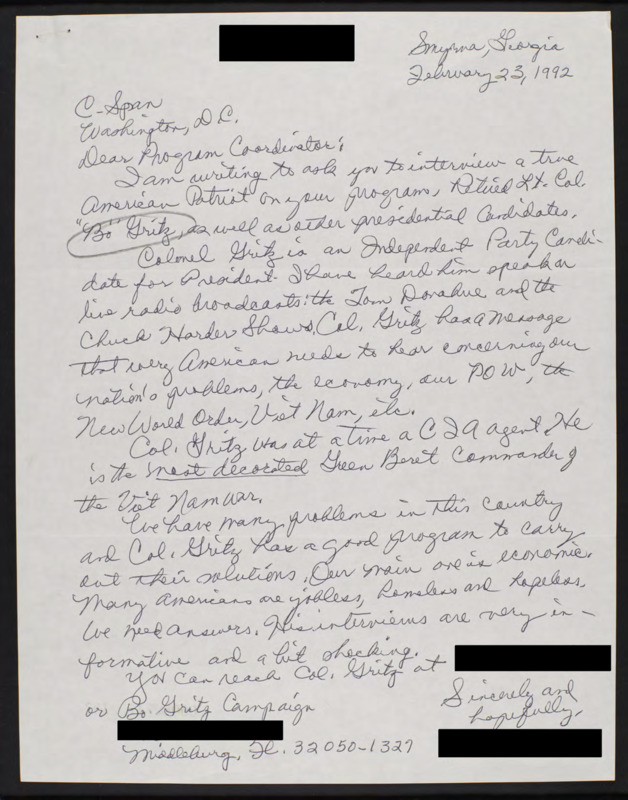 Smyrna, Georgia
February 23, 1992
C-Span
Washington, D.C.
Dear Program Coordinator:
I am writing to ask you to interview a true
American Patriot on your programs, Retired Lt. Col.
"Bo" Gritz, as well as other presidential candidates.
Colonel Gritz is an Independent Party Candi-
date for President. I have heard him speak on
live radio broadcasts: the Tom Donahue and the
Chuck Harder Shows. Col. Gritz has a message
that every American needs to hear concerning our
nation's problems, the economy, our POW, the
New World Order, Viet Nam, etc.
Col. Gritz was at a time a CIA agent. He
is the most decorated Green Beret Commander of
the Viet Nam war.
We have many problems in this country
and Col. Gritz has a good program to carry
out their solutions. Our main one is economic.
Many Americans are jobless, homeless and hopeless.
We need answers. His interviews are very in-
formative and a bit shocking.
You can reach Col. Gritz at
or Bo Gritz Campaign
Middleburg, Fl. 32050-1327
Sincerely and
hopefully,